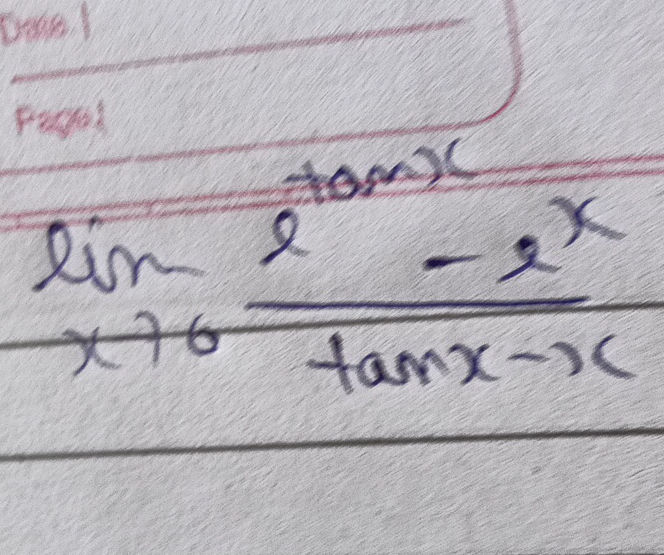 Date /
Page /
lim e^tanx - e^x
x→0 tanx - x